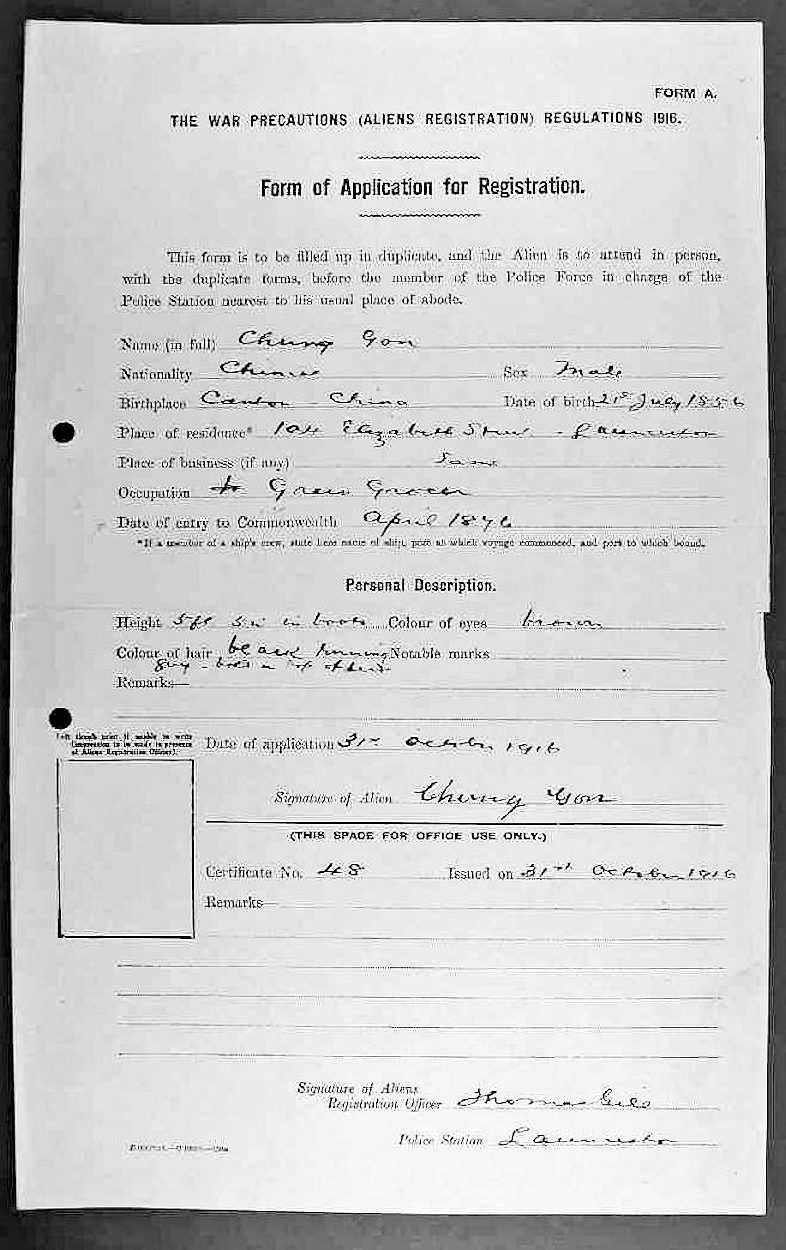 FORM A.
THE WAR PRECAUTIONS (ALIENS REGISTRATION) REGULATIONS 1916.
Form of Application for Registration.
This form is to be filled up in duplicate, and the Alien is to attend in person,
with the duplicate forms, before the member of the Police Force in charge of the
Police Station nearest to his usual place of abode.
Name (in full) Chung Gon
Nationality Chinese Sex Male
Birthplace Canton China Date of birth 21st July 1856
Place of residence* Elizabeth Street - Launceston
Place of business (if any) Same
Occupation Green Grocer
Date of entry to Commonwealth April 1876
*If a member of a ship's crew, state here name of ship, port at which voyage commenced, and port to which bound.
Personal Description.
Height 5 ft 5 in in boots Colour of eyes brown
Colour of hair black turning Notable marks
grey - bald on top of head
Remarks—
(Left thumb print if unable to write
(impression to be made in presence
of Aliens Registration Officer).
Date of application 31st October 1916
Signature of Alien Chung Gon
(THIS SPACE FOR OFFICE USE ONLY.)
Certificate No. 48 Issued on 31st October 1916
Remarks—
Signature of Aliens
Registration Officer Thomas Gill
Police Station Launceston